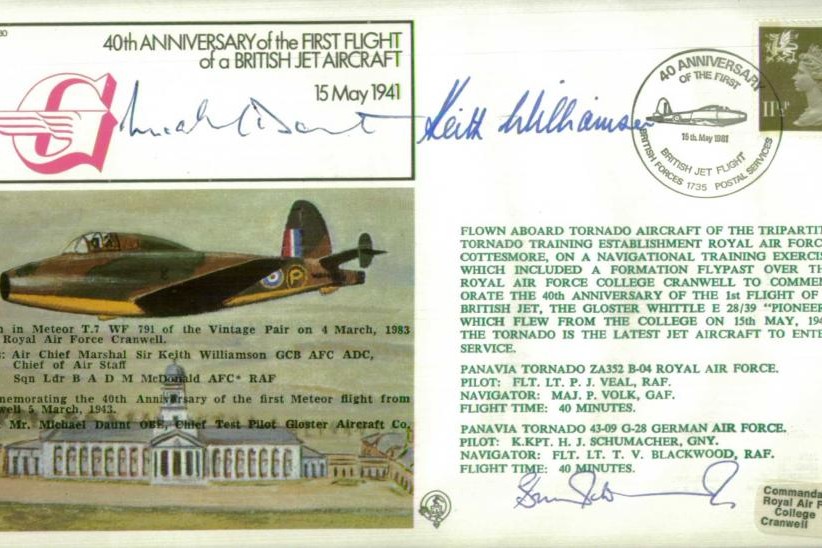 40th ANNIVERSARY of the FIRST FLIGHT
of a BRITISH JET AIRCRAFT
15 May 1941
Keith Williamson
40 ANNIVERSARY
OF THE FIRST
15th. May 1981
BRITISH JET FLIGHT
BRITISH FORCES 1735 POSTAL SERVICES
11½P
FLOWN ABOARD TORNADO AIRCRAFT OF THE TRIPARTIT
TORNADO TRAINING ESTABLISHMENT ROYAL AIR FORC
COTTESMORE, ON A NAVIGATIONAL TRAINING EXERCIS
WHICH INCLUDED A FORMATION FLYPAST OVER TH
ROYAL AIR FORCE COLLEGE CRANWELL TO COMMEM
ORATE THE 40th ANNIVERSARY OF THE 1st FLIGHT OF
BRITISH JET, THE GLOSTER WHITTLE E 28/39 "PIONEER
WHICH FLEW FROM THE COLLEGE ON 15th MAY, 194
THE TORNADO IS THE LATEST JET AIRCRAFT TO ENTE
SERVICE.
PANAVIA TORNADO ZA352 B-04 ROYAL AIR FORCE.
PILOT: FLT. LT. P. J. VEAL, RAF.
NAVIGATOR: MAJ. P. VOLK, GAF.
FLIGHT TIME: 40 MINUTES.
PANAVIA TORNADO 43-09 G-28 GERMAN AIR FORCE.
PILOT: K.KPT. H. J. SCHUMACHER, GNY.
NAVIGATOR: FLT. LT. T. V. BLACKWOOD, RAF.
FLIGHT TIME: 40 MINUTES.
P
n in Meteor T.7 WF 791 of the Vintage Pair on 4 March, 1983
Royal Air Force Cranwell.
: Air Chief Marshal Sir Keith Williamson GCB AFC ADC,
Chief of Air Staff
Sqn Ldr B A D M McDonald AFC* RAF
memorating the 40th Anniversary of the first Meteor flight from
well 5 March, 1943.
: Mr. Michael Daunt OBE, Chief Test Pilot Gloster Aircraft Co.
Commanda
Royal Air F
College
Cranwell